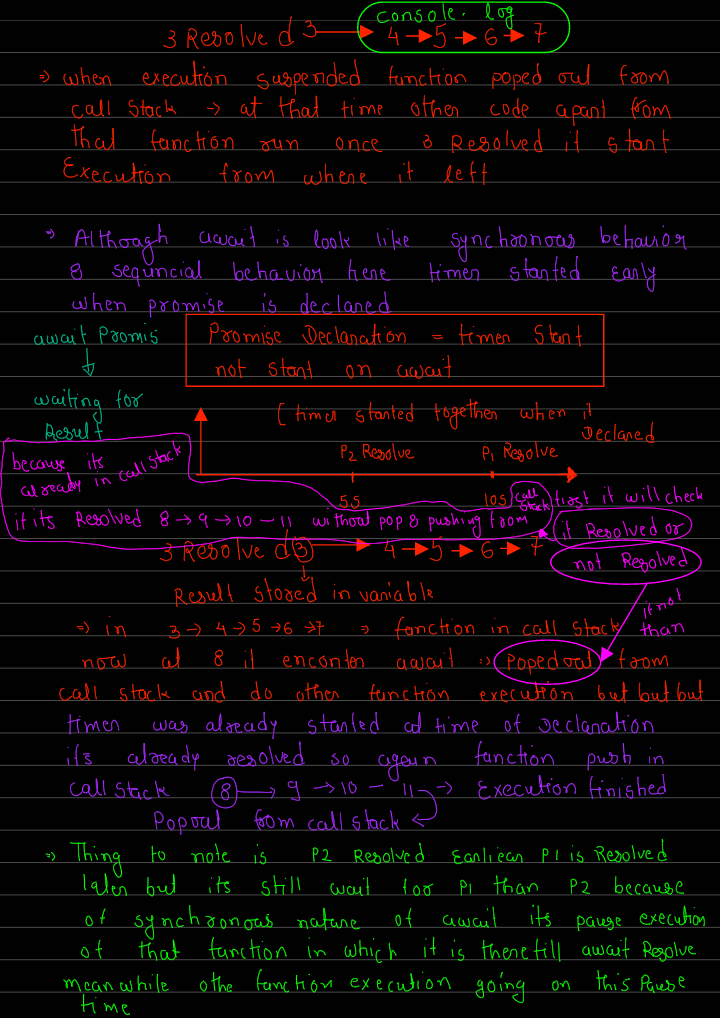 console.log
3 Resolved 3 → 4 → 5 → 6 → 7
⇒ when execution suspended function poped out from
call stack → at that time other code apart from
that function run once 3 Resolved it start
Execution from where it left
⇒ Although await is look like synchronous behavior
& sequncial behavior here timer started early
when promise is declared
await Promis
↓
waiting for
Result
Promise Declaration = timer Start
not start on await
( timer started together when it
Declared
P2 Resolve P1 Resolve
5s 10s
because its
already in call stack
if its Resolved 8 → 9 → 10 - 11 without pop & pushing from call stack
first it will check
if Resolved or
not Resolved
if not
than
3 Resolved 3 → 4 → 5 → 6 → 7
↓
Result stored in variable
⇒ in 3 → 4 → 5 → 6 → 7 ⇒ function in call stack
now at 8 it enconter await ⇒ poped out from
call stack and do other function execution but but but
timer was already started at time of Declaration
its already resolved so again function push in
call stack 8 → 9 → 10 - 11 → Execution finished
Popout from call stack ←
⇒ Thing to note is P2 Resolved Earliear P1 is Resolved
later but its still wait for P1 than P2 because
of synchronous nature of await its pause execution
of that function in which it is there till await Resolve
meanwhile othe function execution going on this Pause
time